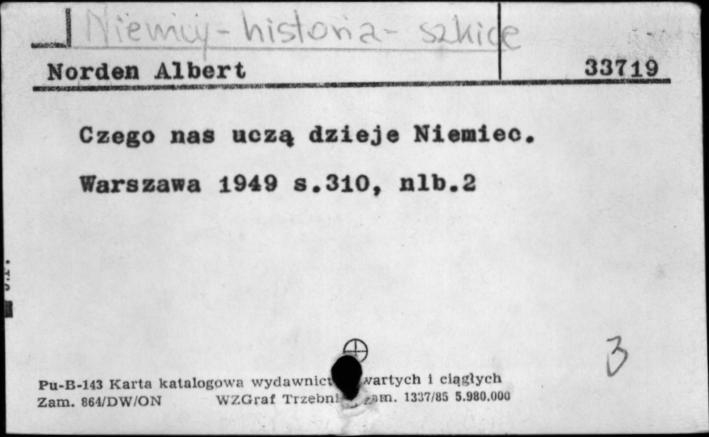 Niemcy - historia - szkice
Norden Albert 33719
Czego nas uczą dzieje Niemiec.
Warszawa 1949 s.310, nlb.2
3
Pu-B-143 Karta katalogowa wydawnict wartych i ciągłych
Zam. 864/DW/ON WZGraf Trzebni zam. 1337/85 5.980.000